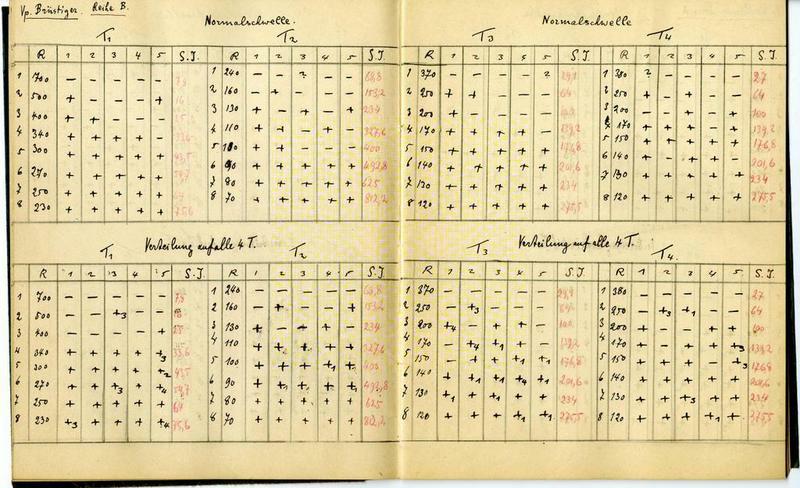 Vp. Brüstiger. Reihe B.
Normalschwelle. Normalschwelle
T1 T2 T3 T4
R 1 2 3 4 5 S.J. R 1 2 3 4 5 S.J. R 1 2 3 4 5 S.J. R 1 2 3 4 5 S.J.
1 700 – – – – – 1 240 – – ? – – 1 370 – – – – ? 1 380 ? – – – – 27
2 500 + – – – + 2 160 – + – – – 153,2 2 250 + + – – – 64 2 250 + – + – – 64
3 400 + + – – – 3 130 + – + – + 234 3 200 + – – – – 100 3 200 – – + – + 100
4 340 + + + + – 4 110 + + – + – 327,6 4 170 + + + + – 139,2 4 170 + + + – + 139,2
5 300 + + + + + 43,5 5 100 + – – – – 400 5 150 + + + + + 176,8 5 150 + + + + + 176,8
6 270 + + + + + 6 90 + + + + + 492,8 6 140 + + + + + 201,6 6 140 + – + + – 201,6
7 250 + + + + + 7 80 + + + + + 625 7 130 + + + + + 234 7 130 + + + + + 234
8 230 + + + + + 75,6 8 70 + + + + + 812,2 8 120 + + + + + 275,5 8 120 + + + + + 275,5
Verteilung auf alle 4 T. Verteilung auf alle 4 T.
T1 T2 T3 T4.
R 1 2 3 4 5 S.J. R 1 2 3 4 5 S.J. R 1 2 3 4 5 S.J. R 1 2 3 4 5 S.J.
1 700 – – – – – 1 240 – – – – – 68,8 1 370 – – – – – 1 380 – – – – – 27
2 500 – – +3 – – 2 160 – + – – + 153,2 2 250 – +3 – – – 64 2 250 – +3 +1 – – 64
3 400 – – – – + 3 130 + – + + – 234 3 200 +4 – + – – 100 3 200 + – – + + 100
4 340 + + + + +3 33,6 4 110 + + + + 327,6 4 170 – +4 +1 + – 139,2 4 170 + – – + +3 139,2
5 300 + + + + +2 43,5 5 100 + + + +1 + 400 5 150 – – + +1 +1 176,8 5 150 + + – – +3 176,8
6 270 + + +3 + +4 53,7 6 90 + +1 + +1 + 492,8 6 140 + +1 +1 +4 +1 201,6 6 140 + + + + + 201,6
7 250 + + + + + 64 7 80 + + + + + 625 7 130 +1 + +1 + + 234 7 130 + + +3 + + 234
8 230 +3 + + + +4 75,6 8 70 + + + + + 812,2 8 120 + + + + +1 275,5 8 120 + + + +1 + 275,5